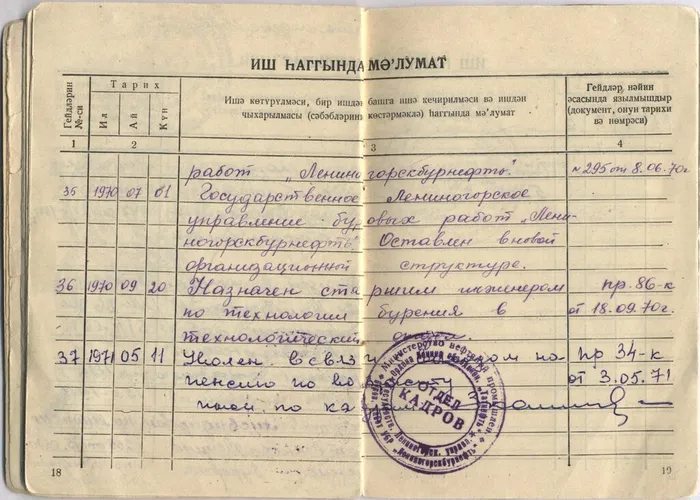 ИШ ҺАГГЫНДА МӘ'ЛУМАТ
Гейдләрин №-си
Тарих
Ил
Ай
Күн
Ишә көтүрүлмәси, бир ишдән башга ишә кечирилмәси вә ишдән
чыхарылмасы (сәбәбләрини көстәрмәклә) һаггында мә'лумат
Гейдләр, нәйин
әсасында язылмышдыр
(документ, онун тарихи
вә нөмрәси)
1 2 3 4
работ „Лениногорскбурнефть". №295 от 8.06.70г
35 1970 07 01 Государственное Лениногорское
управление буровых работ „Лени-
ногорскбурнефть" Оставлен в новой
организационной структуре.
36 1970 09 20 Назначен старшим инженером пр. 86-к
по технологии бурения в от 18.09.70г.
технологический
37 1971 05 11 Уволен в связи на пр 34-к
пенсию по от 3.05.71
по
Министерство нефтяной
ОТДЕЛ
КАДРОВ
„Лениногорскбурнефть"
18
19